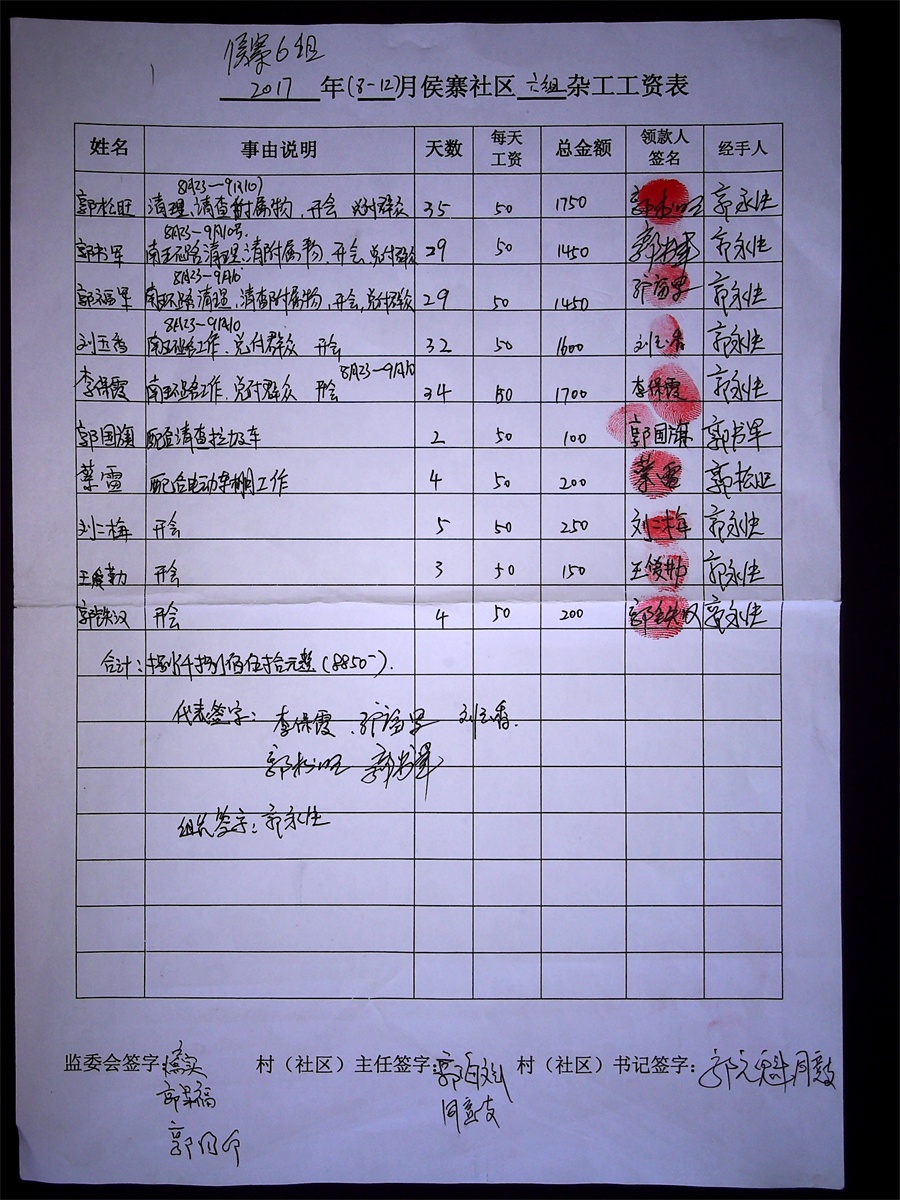 侯寨6组
2017年(8-12)月侯寨社区六组杂工工资表
姓名 事由说明 天数 每天工资 总金额 领款人签名 经手人
8月23—9月10)
郭松旺 清理、清查附属物、开会 兑付群众 35 50 1750 郭松旺 郭永
8月23—9月10号.
郭书军 南环路清理.清附属物.开会.兑付群众 29 50 1450 郭书军 郭永
8月23—9月10
郭福军 南环路清理.清查附属物,开会,兑付群众 29 50 1450 郭永
8月23—9月10
刘玉香 南环路工作、兑付群众 开会 32 50 1600 刘玉香 郭永
8月23—9月10
李保霞 南环路工作.兑付群众 开会 34 50 1700 李保霞 郭永
郭国旗 配合清查垃圾车 2 50 100 郭国旗 郭书军
蔡雷 配合电动车棚工作 4 50 200 蔡雷 郭松旺
刘二梅 开会 5 50 250 刘二梅 郭永
王爱勤 开会 3 50 150 王爱勤 郭永
郭铁汉 开会 4 50 200 郭铁汉 郭永
合计:捌仟捌佰伍拾元整(8850-).
代表签字: 李保霞、郭福军 刘玉香.
郭松旺 郭书军
组长签字:郭永
监委会签字: 村（社区）主任签字: 郭 村（社区）书记签字: 郭元魁 同意
郭 同意支
郭